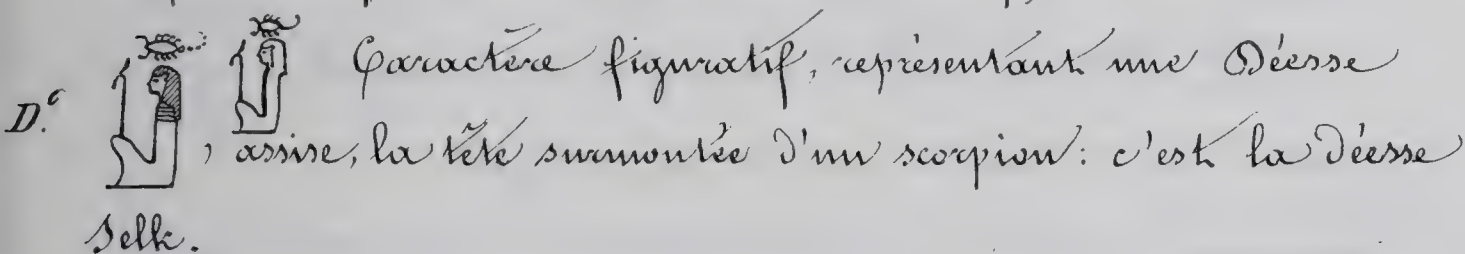 Caractère figuratif, représentant une Déesse
D.º , assise, la tête surmontée d'un scorpion: c'est la Déesse
Selk.